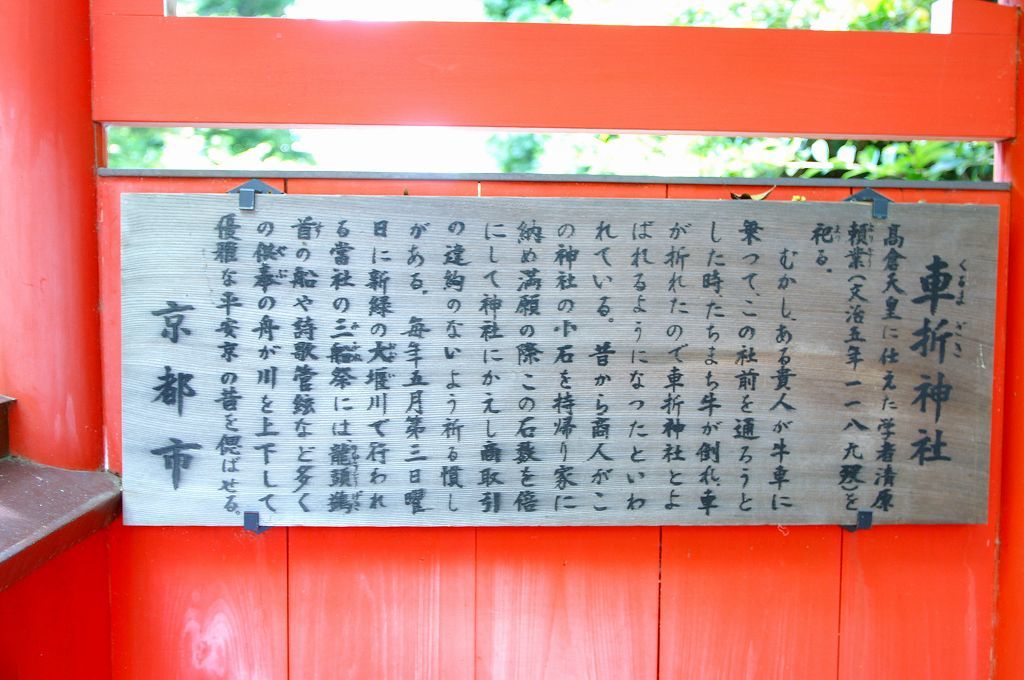 車折神社
くるま ざき
高倉天皇に仕えた学者清原
頼業(文治五年一一八九歿)を
よりなり
祀る。
まつ
むかし、ある貴人が牛車に
乗って、この社前を通ろうと
した時、たちまち牛が倒れ、車
が折れたので車折神社とよ
ばれるようになったといわ
れている。昔から商人がこ
の神社の小石を持帰り家に
納め満願の際この石数を倍
にして神社にかえし商取引
の違約のないよう祈る慣し
がある。毎年五月第三日曜
日に新緑の大堰川で行われ
る当社の三船祭には龍頭鷁
首の船や詩歌管絃など多く
の供奉の舟が川を上下して
優雅な平安京の昔を偲ばせる。
京都市